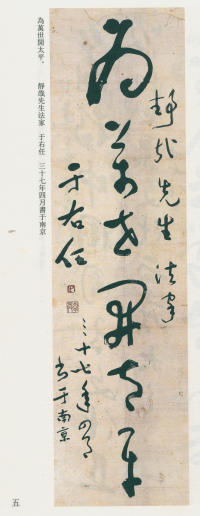 靜哉先生法家
為萬世開太平
于右任
三十七年四月
書于南京
為萬世開太平。 靜哉先生法家 于右任 三十七年四月書于南京
五